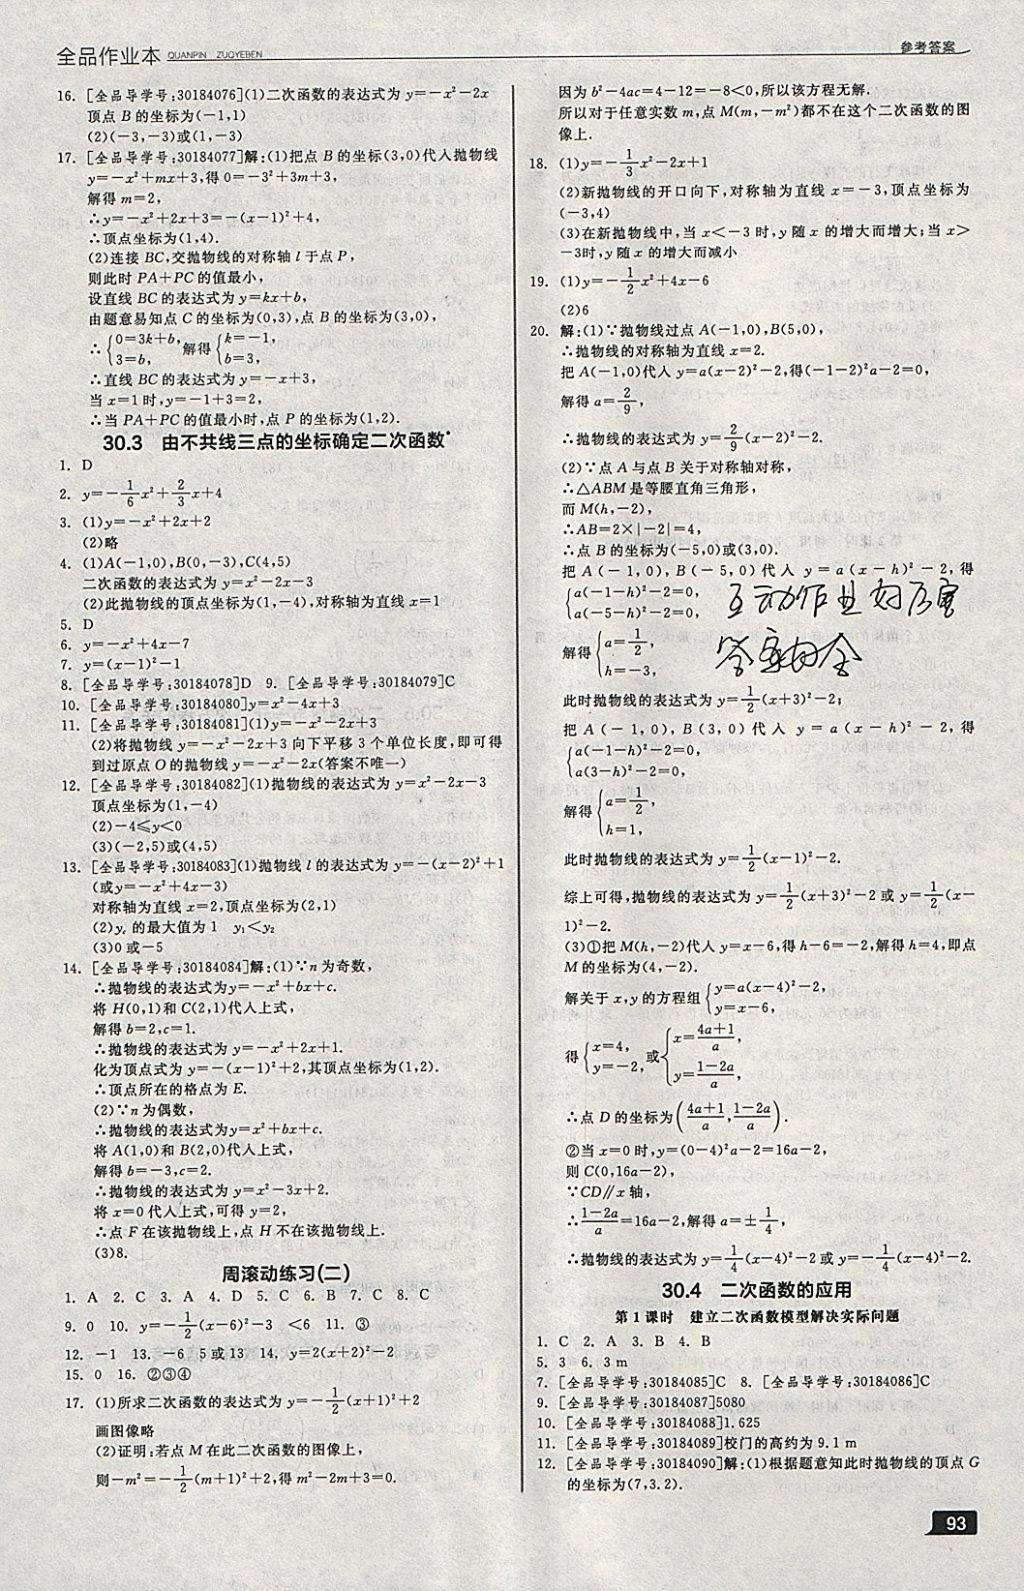 全品作业本 QUANPIN ZUOYEBEN
参考答案
16. [全品导学号:30184076](1)二次函数的表达式为 y=-x²-2x
顶点 B 的坐标为(-1,1)
(2)(-3,-3)或(1,-3)
17. [全品导学号:30184077]解:(1)把点 B 的坐标(3,0)代入抛物线
y=-x²+mx+3,得 0=-3²+3m+3,
解得 m=2,
∴y=-x²+2x+3=-(x-1)²+4,
∴顶点坐标为(1,4).
(2)连接 BC,交抛物线的对称轴 l 于点 P,
则此时 PA+PC 的值最小,
设直线 BC 的表达式为 y=kx+b,
由题意易知点 C 的坐标为(0,3),点 B 的坐标为(3,0),
∴{0=3k+b, 3=b, 解得{k=-1, b=3,
∴直线 BC 的表达式为 y=-x+3,
当 x=1 时,y=-1+3=2,
∴当 PA+PC 的值最小时,点 P 的坐标为(1,2).
30.3 由不共线三点的坐标确定二次函数*
1. D
2. y=-1/6x²+2/3x+4
3. (1)y=-x²+2x+2
(2)略
4. (1)A(-1,0),B(0,-3),C(4,5)
二次函数的表达式为 y=x²-2x-3
(2)此抛物线的顶点坐标为(1,-4),对称轴为直线 x=1
5. D
6. y=-x²+4x-7
7. y=(x-1)²-1
8. [全品导学号:30184078]D 9. [全品导学号:30184079]C
10. [全品导学号:30184080]y=x²-4x+3
11. [全品导学号:30184081](1)y=-x²-2x+3
(2)将抛物线 y=-x²-2x+3 向下平移 3 个单位长度,即可得
到过原点 O 的抛物线 y=-x²-2x(答案不唯一)
12. [全品导学号:30184082](1)抛物线的表达式为 y=x²-2x-3
顶点坐标为(1,-4)
(2)-4≤y<0
(3)(-2,5)或(4,5)
13. [全品导学号:30184083](1)抛物线 l 的表达式为 y=-(x-2)²+1
(或 y=-x²+4x-3)
对称轴为直线 x=2,顶点坐标为(2,1)
(2)y꜀ 的最大值为 1 y₁<y₂
(3)0 或-5
14. [全品导学号:30184084]解:(1)∵n 为奇数,
∴抛物线的表达式为 y=-x²+bx+c.
将 H(0,1)和 C(2,1)代入上式,
解得 b=2,c=1.
∴抛物线的表达式为 y=-x²+2x+1.
化为顶点式为 y=-(x-1)²+2,其顶点坐标为(1,2).
∴顶点所在的格点为 E.
(2)∵n 为偶数,
∴抛物线的表达式为 y=x²+bx+c.
将 A(1,0)和 B(2,0)代入上式,
解得 b=-3,c=2.
∴抛物线的表达式为 y=x²-3x+2.
将 x=0 代入上式,可得 y=2,
∴点 F 在该抛物线上,点 H 不在该抛物线上.
(3)8.
周滚动练习(二)
1. A 2. C 3. A 4. D 5. C 6. B 7. C 8. C
9. 0 10. y=-1/2(x-6)²-3 <6 11. ③
12. -1 13. -6 5 或 13 14. y=2(x+2)²-2
15. 0 16. ②③④
17. (1)所求二次函数的表达式为 y=-1/2(x+1)²+2
画图像略
(2)证明:若点 M 在此二次函数的图像上,
则-m²=-1/2(m+1)²+2,得 m²-2m+3=0.
因为 b²-4ac=4-12=-8<0,所以该方程无解.
所以对于任意实数 m,点 M(m,-m²)都不在这个二次函数的图
像上.
18. (1)y=-1/3x²-2x+1
(2)新抛物线的开口向下,对称轴为直线 x=-3,顶点坐标为
(-3,4)
(3)在新抛物线中,当 x<-3 时,y 随 x 的增大而增大;当 x>
-3时,y 随 x 的增大而减小
19. (1)y=-1/2x²+4x-6
(2)6
20. 解:(1)∵抛物线过点 A(-1,0),B(5,0),
∴抛物线的对称轴为直线 x=2.
把 A(-1,0)代入 y=a(x-2)²-2,得(-1-2)²a-2=0,
解得 a=2/9,
∴抛物线的表达式为 y=2/9(x-2)²-2.
(2)∵点 A 与点 B 关于对称轴对称,
∴△ABM 是等腰直角三角形,
而 M(h,-2),
∴AB=2×|-2|=4,
∴点 B 的坐标为(-5,0)或(3,0).
把 A(-1,0),B(-5,0)代入 y=a(x-h)²-2,得
{a(-1-h)²-2=0, a(-5-h)²-2=0,
互动作业好厉害
解得{a=1/2, h=-3,
答案由全
此时抛物线的表达式为 y=1/2(x+3)²-2;
把 A(-1,0),B(3,0)代入 y=a(x-h)²-2,得
{a(-1-h)²-2=0, a(3-h)²-2=0,
解得{a=1/2, h=1,
此时抛物线的表达式为 y=1/2(x-1)²-2.
综上可得,抛物线的表达式为 y=1/2(x+3)²-2 或 y=1/2(x-
1)²-2.
(3)①把 M(h,-2)代入 y=x-6,得 h-6=-2,解得 h=4,即点
M 的坐标为(4,-2).
解关于 x,y 的方程组{y=a(x-4)²-2, y=x-6,
得{x=4, y=-2, 或{x=(4a+1)/a, y=(1-2a)/a,
∴点 D 的坐标为((4a+1)/a,(1-2a)/a).
②当 x=0 时,y=(0-4)²a-2=16a-2,
则 C(0,16a-2),
∵CD∥x 轴,
∴(1-2a)/a=16a-2,解得 a=±1/4,
∴抛物线的表达式为 y=1/4(x-4)²-2 或 y=-1/4(x-4)²-2.
30.4 二次函数的应用
第 1 课时 建立二次函数模型解决实际问题
1. C 2. A 3. B 4. B
5. 3 6. 3 m
7. [全品导学号:30184085]C 8. [全品导学号:30184086]C
9. [全品导学号:30184087]5080
10. [全品导学号:30184088]1.625
11. [全品导学号:30184089]校门的高约为 9.1 m
12. [全品导学号:30184090]解:(1)根据题意知此时抛物线的顶点 G
的坐标为(7,3.2).
93